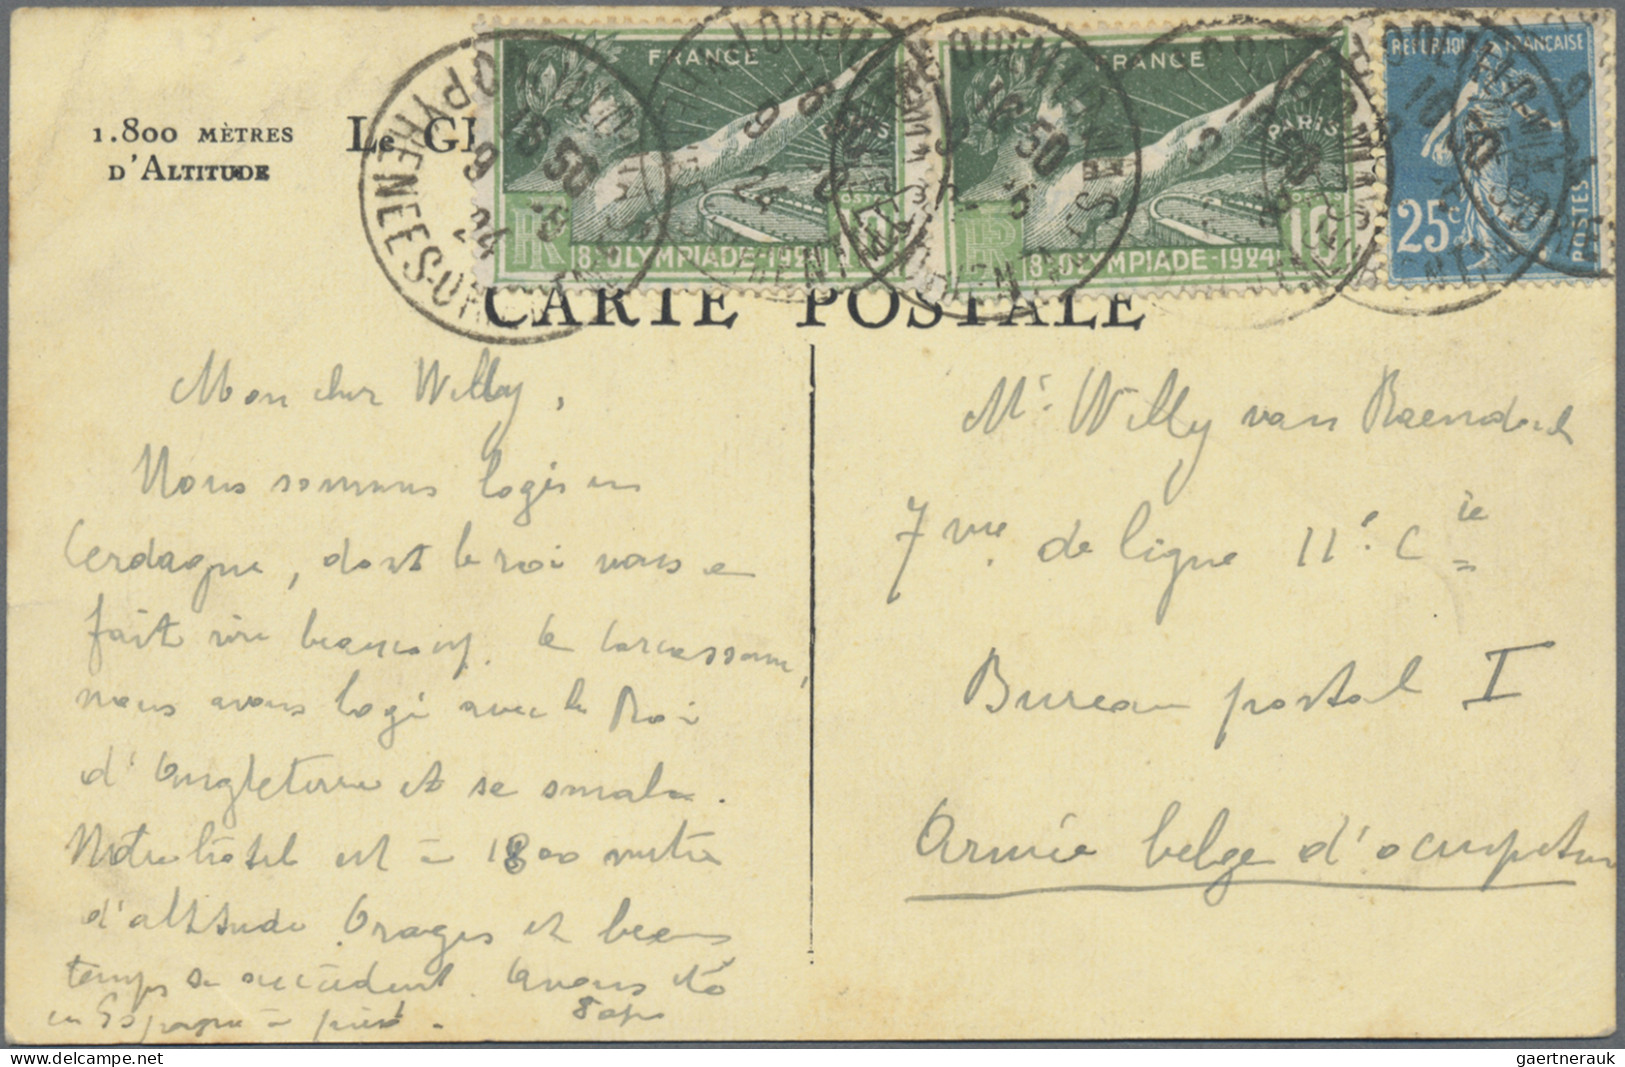 1.800 MÈTRES
D'ALTITUDE
LE G
FRANCE
PARIS
POSTES
RF
8E OLYMPIADE-1924
10
FRANCE
PARIS
POSTES
RF
8E OLYMPIADE-1924
10
REPUBLIQUE FRANÇAISE
25c
POSTES
PYRENEES-OR
16 50
9 -9
24
CARTE POSTALE
Mon cher Willy,
Nous sommes logés en
Cerdagne, dont le roi vous a
fait rire beaucoup. A Carcassonne,
nous avons logé avec le Roi
d'Angleterre et se
Notre hôtel est à 1800 mètres
d'altitude. Orages et beau
temps se succèdent. Avons été
en Espagne à pied.
Mr. Willy van
7me de ligne 11e Cie
Bureau postal I
Armée belge d'occupation
gaertnerauk